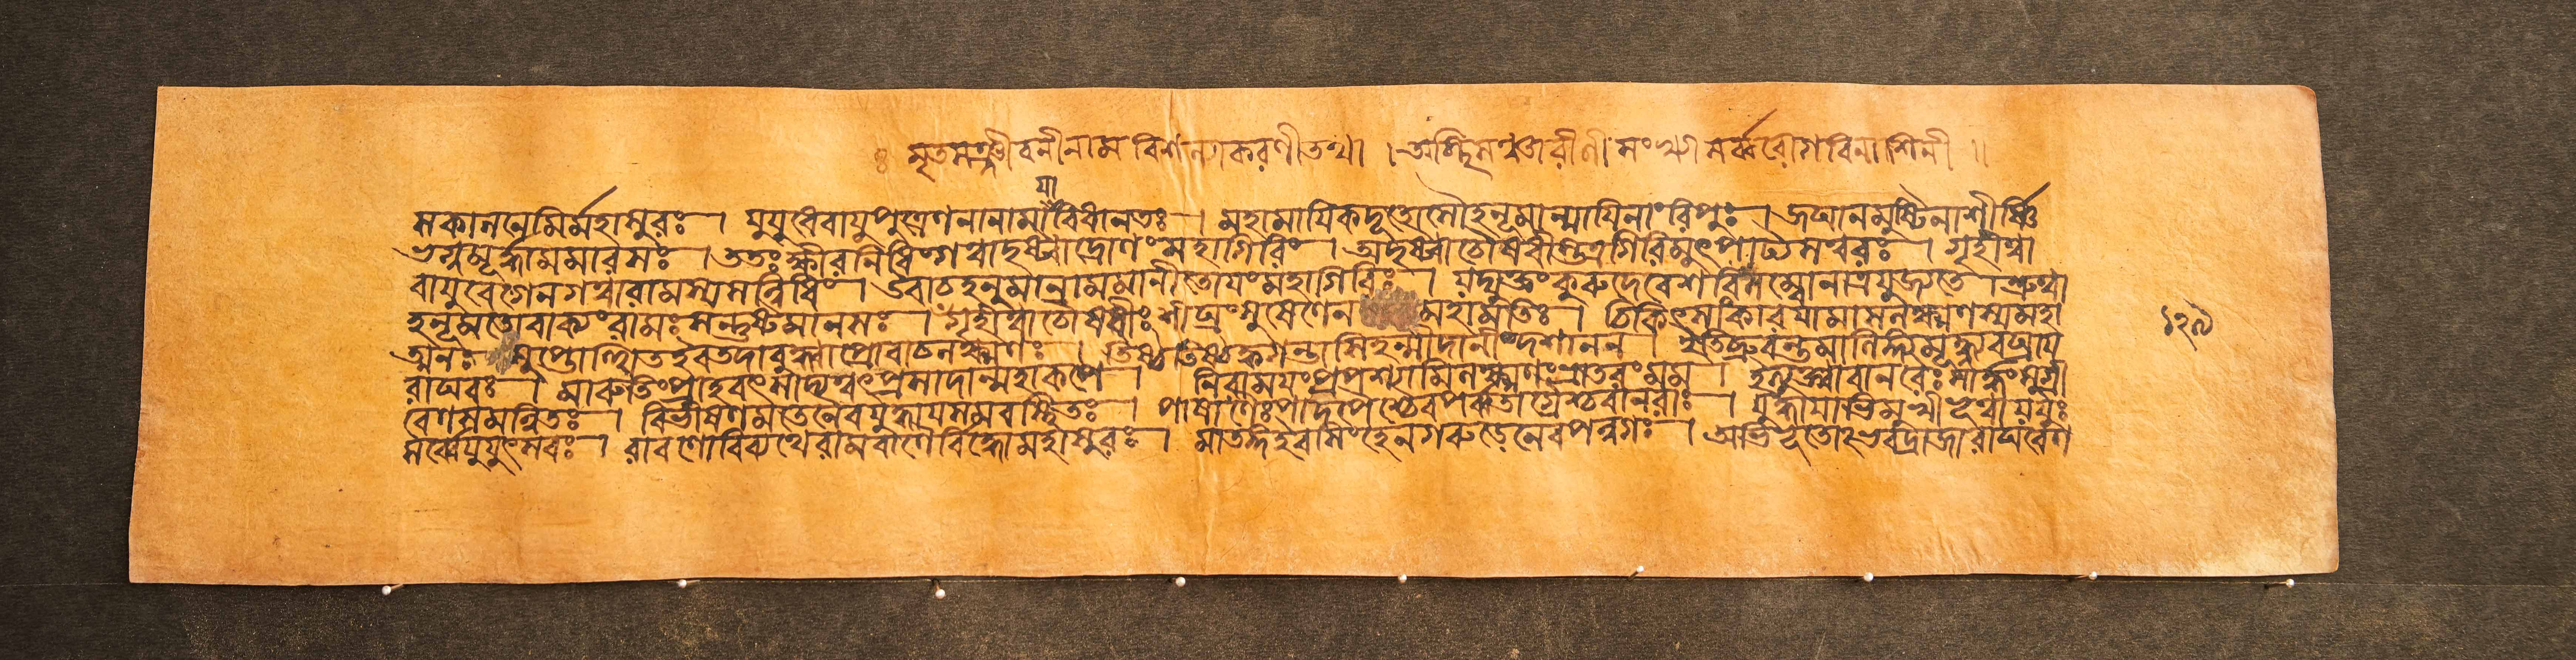 ঃ মৃতসঞ্জীবনীনাম বিশল্যকরণীতথা । সর্ব্বরোগবিনাশিনী ॥
যা
সকালনেমির্ম্মহাসুরঃ । যুযুধেবায়ুপুত্রেণনানামাবিধানতঃ । মহামায়িকদূতোসৌহনূমান্মায়িনাংরিপুঃ । জঘানমুষ্টিনাশীর্ষ্ণি
ভগ্নমূর্দ্ধামমারসঃ । ততঃক্ষীরনিধিংগত্বাদৃষ্ট্বাদ্রোণংমহাগিরিং । অদৃষ্ট্বাচৌষধীস্তত্রগিরিমুৎপাট্যসত্বরঃ । গৃহীত্বা
বায়ুবেগেনগত্বারামস্যসন্নিধিং । উবাচহনুমান্রামমানীতোয়ংমহাগিরিঃ । যদ্যুক্তংকুরুদেবেশবিলম্বোনাত্রযুজ্যতে । শ্রুত্বা
হনূমতোবাক্যংরামঃসন্তুষ্টমানসঃ । গৃহীত্বাচৌষধীঃশীঘ্রংসুষেণেন মহামতিঃ । চিকিৎসাংকারয়ামাসলক্ষ্মণস্যমহা
ত্মনঃ সুপ্তোত্থিতইবতদাবুদ্ধ্বাপ্রোবাচলক্ষ্মণঃ । তিষ্ঠতিষ্ঠক্বগন্তাসিহন্মীদানীংদশানন । ইতিব্রুবন্তমালিঙ্গ্যমূর্দ্ধ্ন্যবঘ্রায়
রাঘবঃ । মারুতিংপ্রাহবৎসাদ্যত্বৎপ্রসাদান্মহাকপে । নিরাময়ংপ্রপশ্যামিলক্ষ্মণংভ্রাতরংমম । ইত্যুক্ত্বাবানরৈঃসার্দ্ধংসুগ্রী
বেণসমন্বিতঃ । বিভীষণমতেনৈবযুদ্ধায়সমবস্থিতঃ । পাষাণৈঃপাদপৈশ্চৈবপর্ব্বতাগ্রৈশ্চবানরাঃ । যুদ্ধায়াভিমুখাভূত্বাযযুঃ
সর্ব্বেযুযুৎসবঃ । রাবণোবিব্যথেরামবাণৈর্বিদ্ধোমহাসুরঃ । মাতঙ্গইবসিংহেনগরুড়েনেবপন্নগঃ । অভিভূতোঽভবদ্রাজারাঘবেণ
১২৯